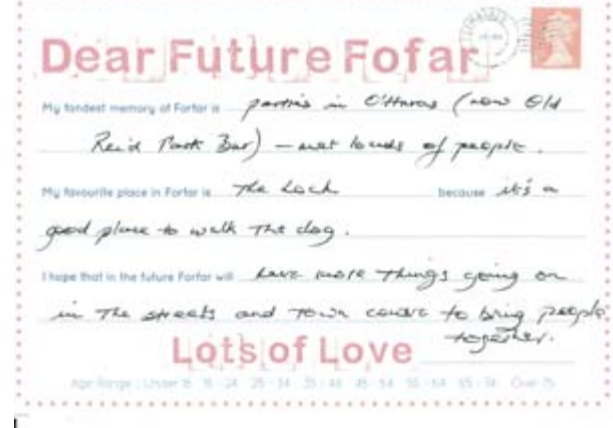 Dear Future Fofar
My fondest memory of Forfar is parties in O'Haras (now Old
Reid Park Bar) – met loads of people.
My favourite place in Forfar is The Loch because it's a
good place to walk the dog.
I hope that in the future Forfar will have more things going on
in the streets and town centre to bring people
together.
Lots of Love
Age Range: Under 16 16 - 24 25 - 34 35 - 44 45 - 54 55 - 64 65 - 74 Over 75